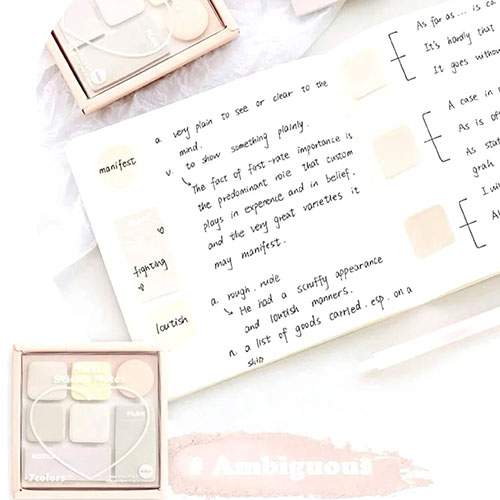 manifest
a. very plain to see or clear to the
mind.
v. to show something plainly.
The fact of first-rate importance is
the predominant role that custom
plays in experience and in belief.
and the very great varieties it
may manifest.
fighting
loutish
a. rough. rude
He had a scruffy appearance
and loutish manners.
n. a list of goods carried. esp. on a
ship
As far as ... is co
It's hardly that
It goes withou
A case in
As is of
As sta
grah.
Sticky Notes
PLAN
NOTE
7colors
# Ambiguous